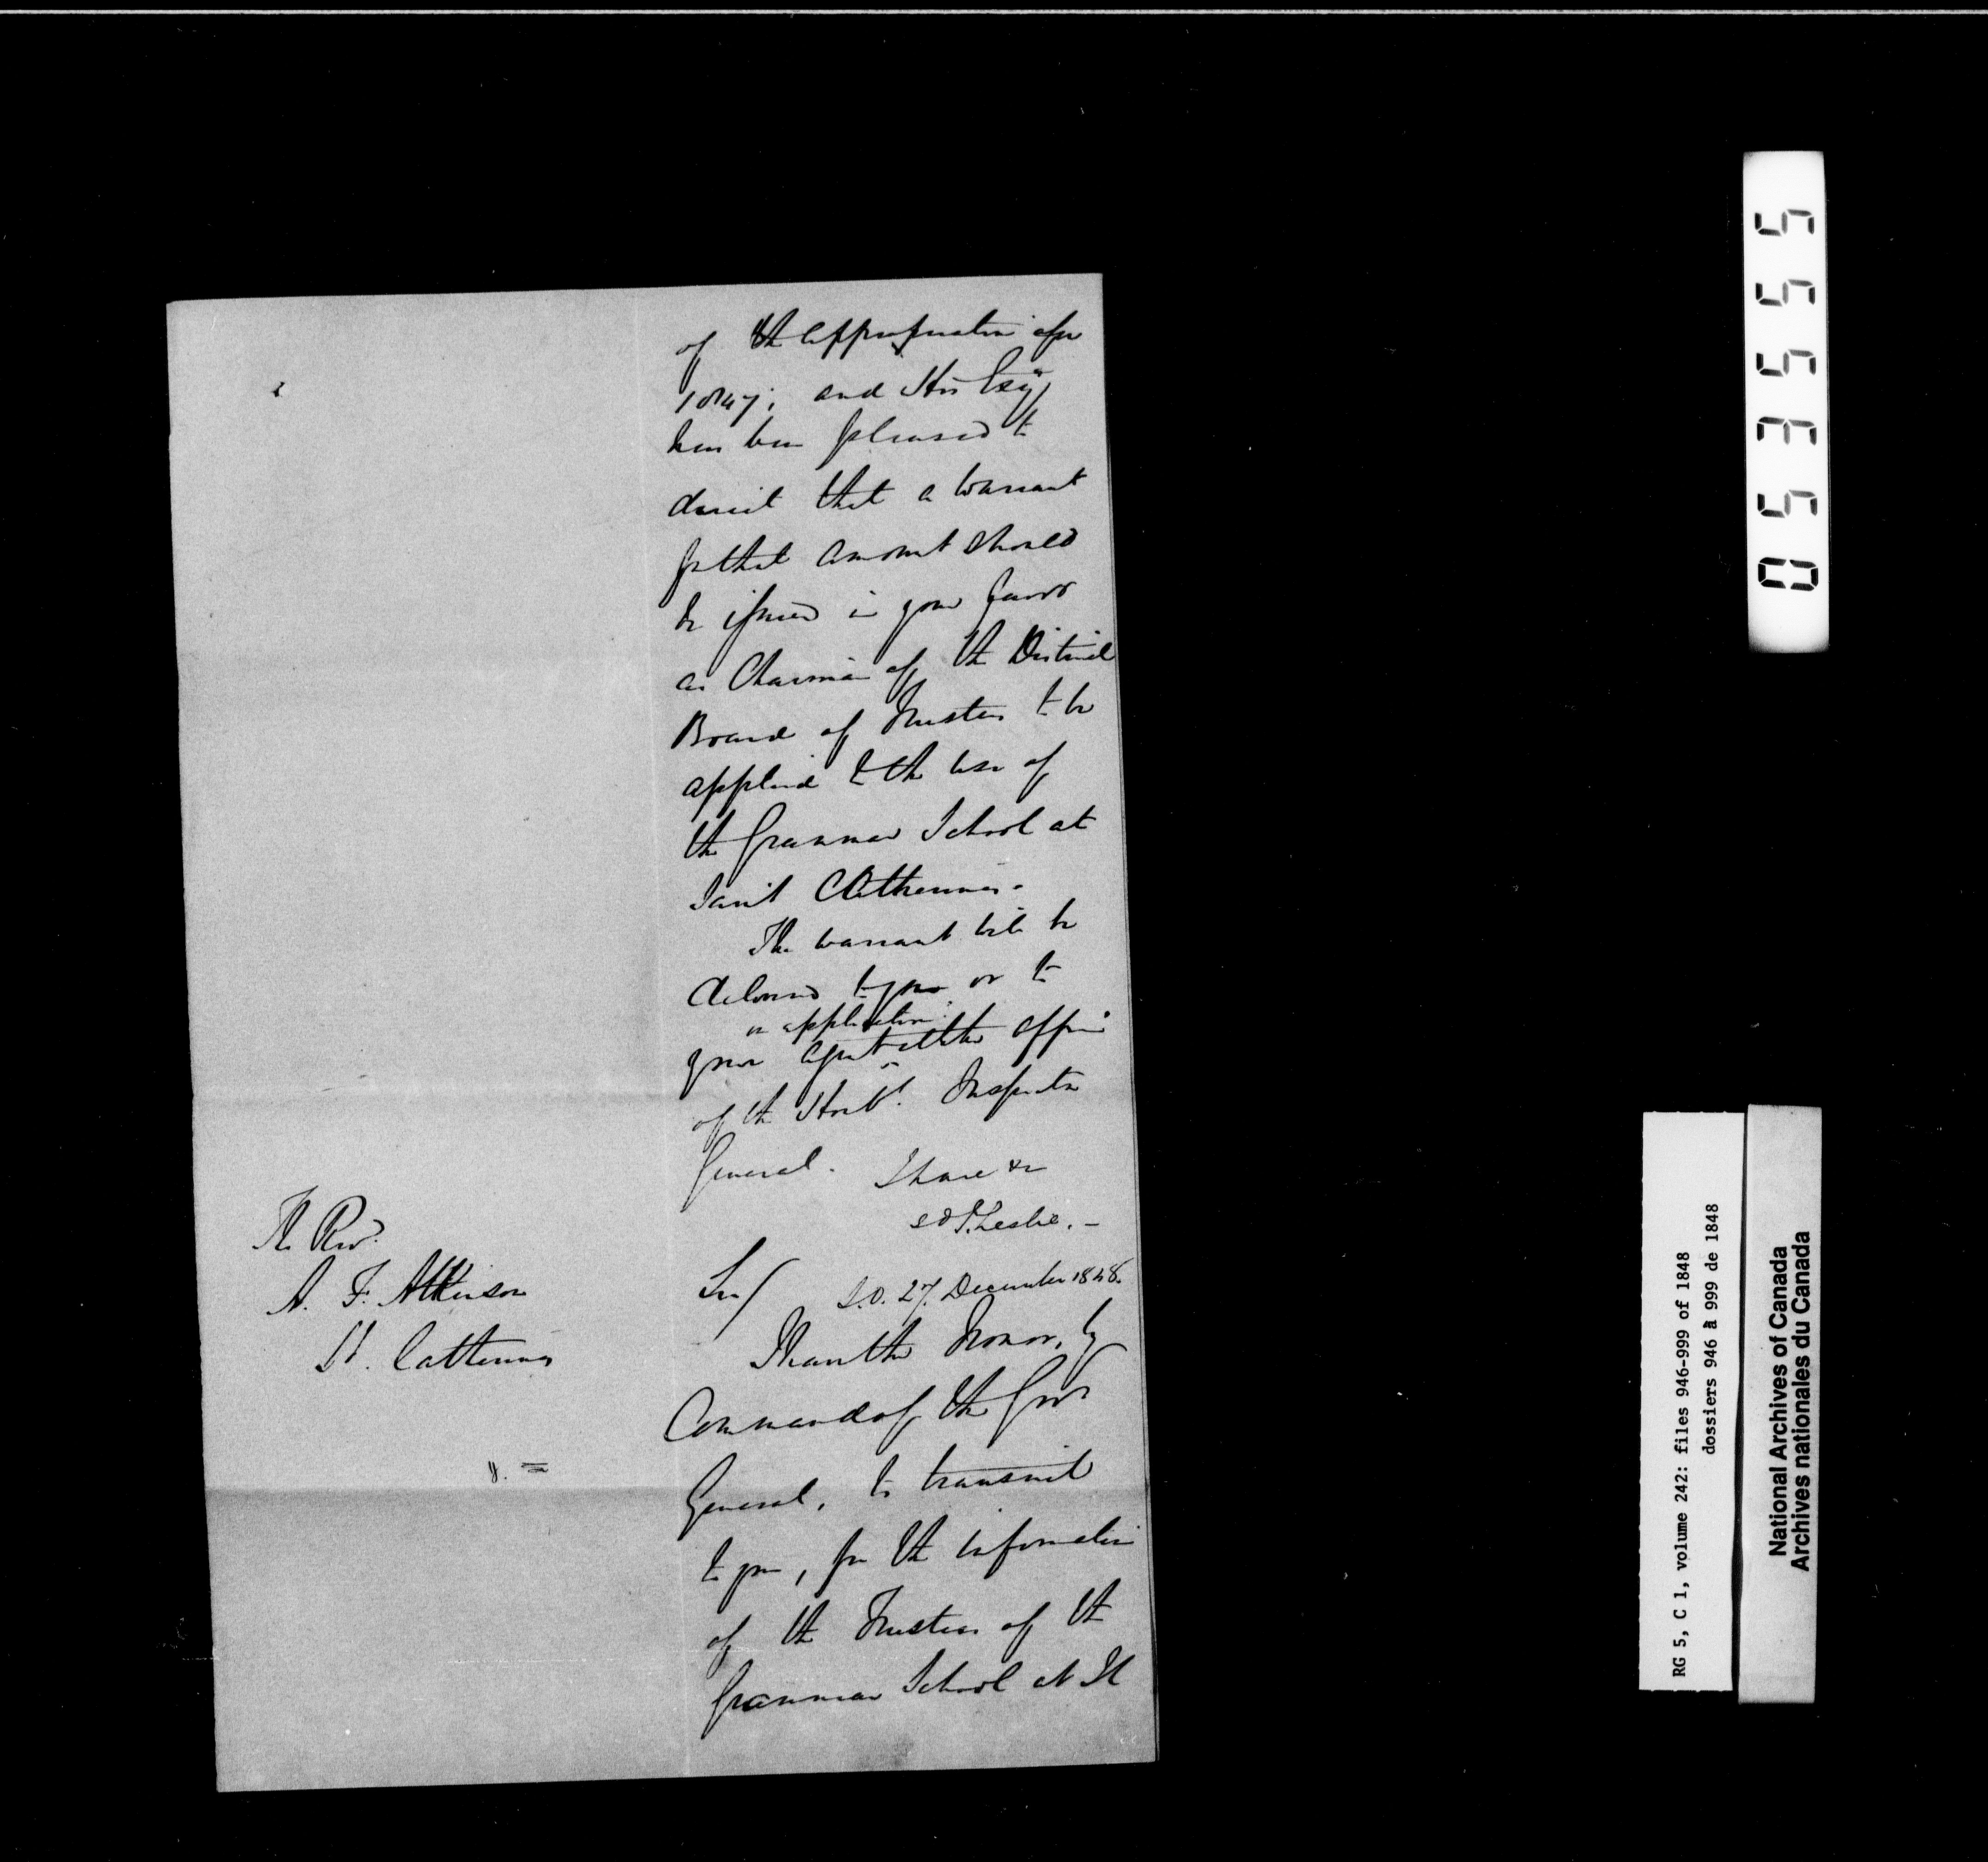 of the appropriation for
1847; and His Excy
has been pleased to
direct that a warrant
for that amount should
be issued in your favor
as Chairman of the District
Board of Trustees to be
applied to the use of
the Grammar School at
Saint Catherines.
The warrant will be
delivered to you or to
on application
your agent at the office
of the Honble. Inspector
General. I have &c
sd J. Leslie. —
The Revd.
A. F. Atkinson
St. Catherines
Sir/ S.O. 27. December 1848.
I have the honor, by
Command of the Govr
General, to transmit
to you, for the information
of the Trustees of the
Grammar School at St
05355
RG 5, C 1, volume 242: files 946-999 of 1848
dossiers 946 à 999 de 1848
National Archives of Canada
Archives nationales du Canada